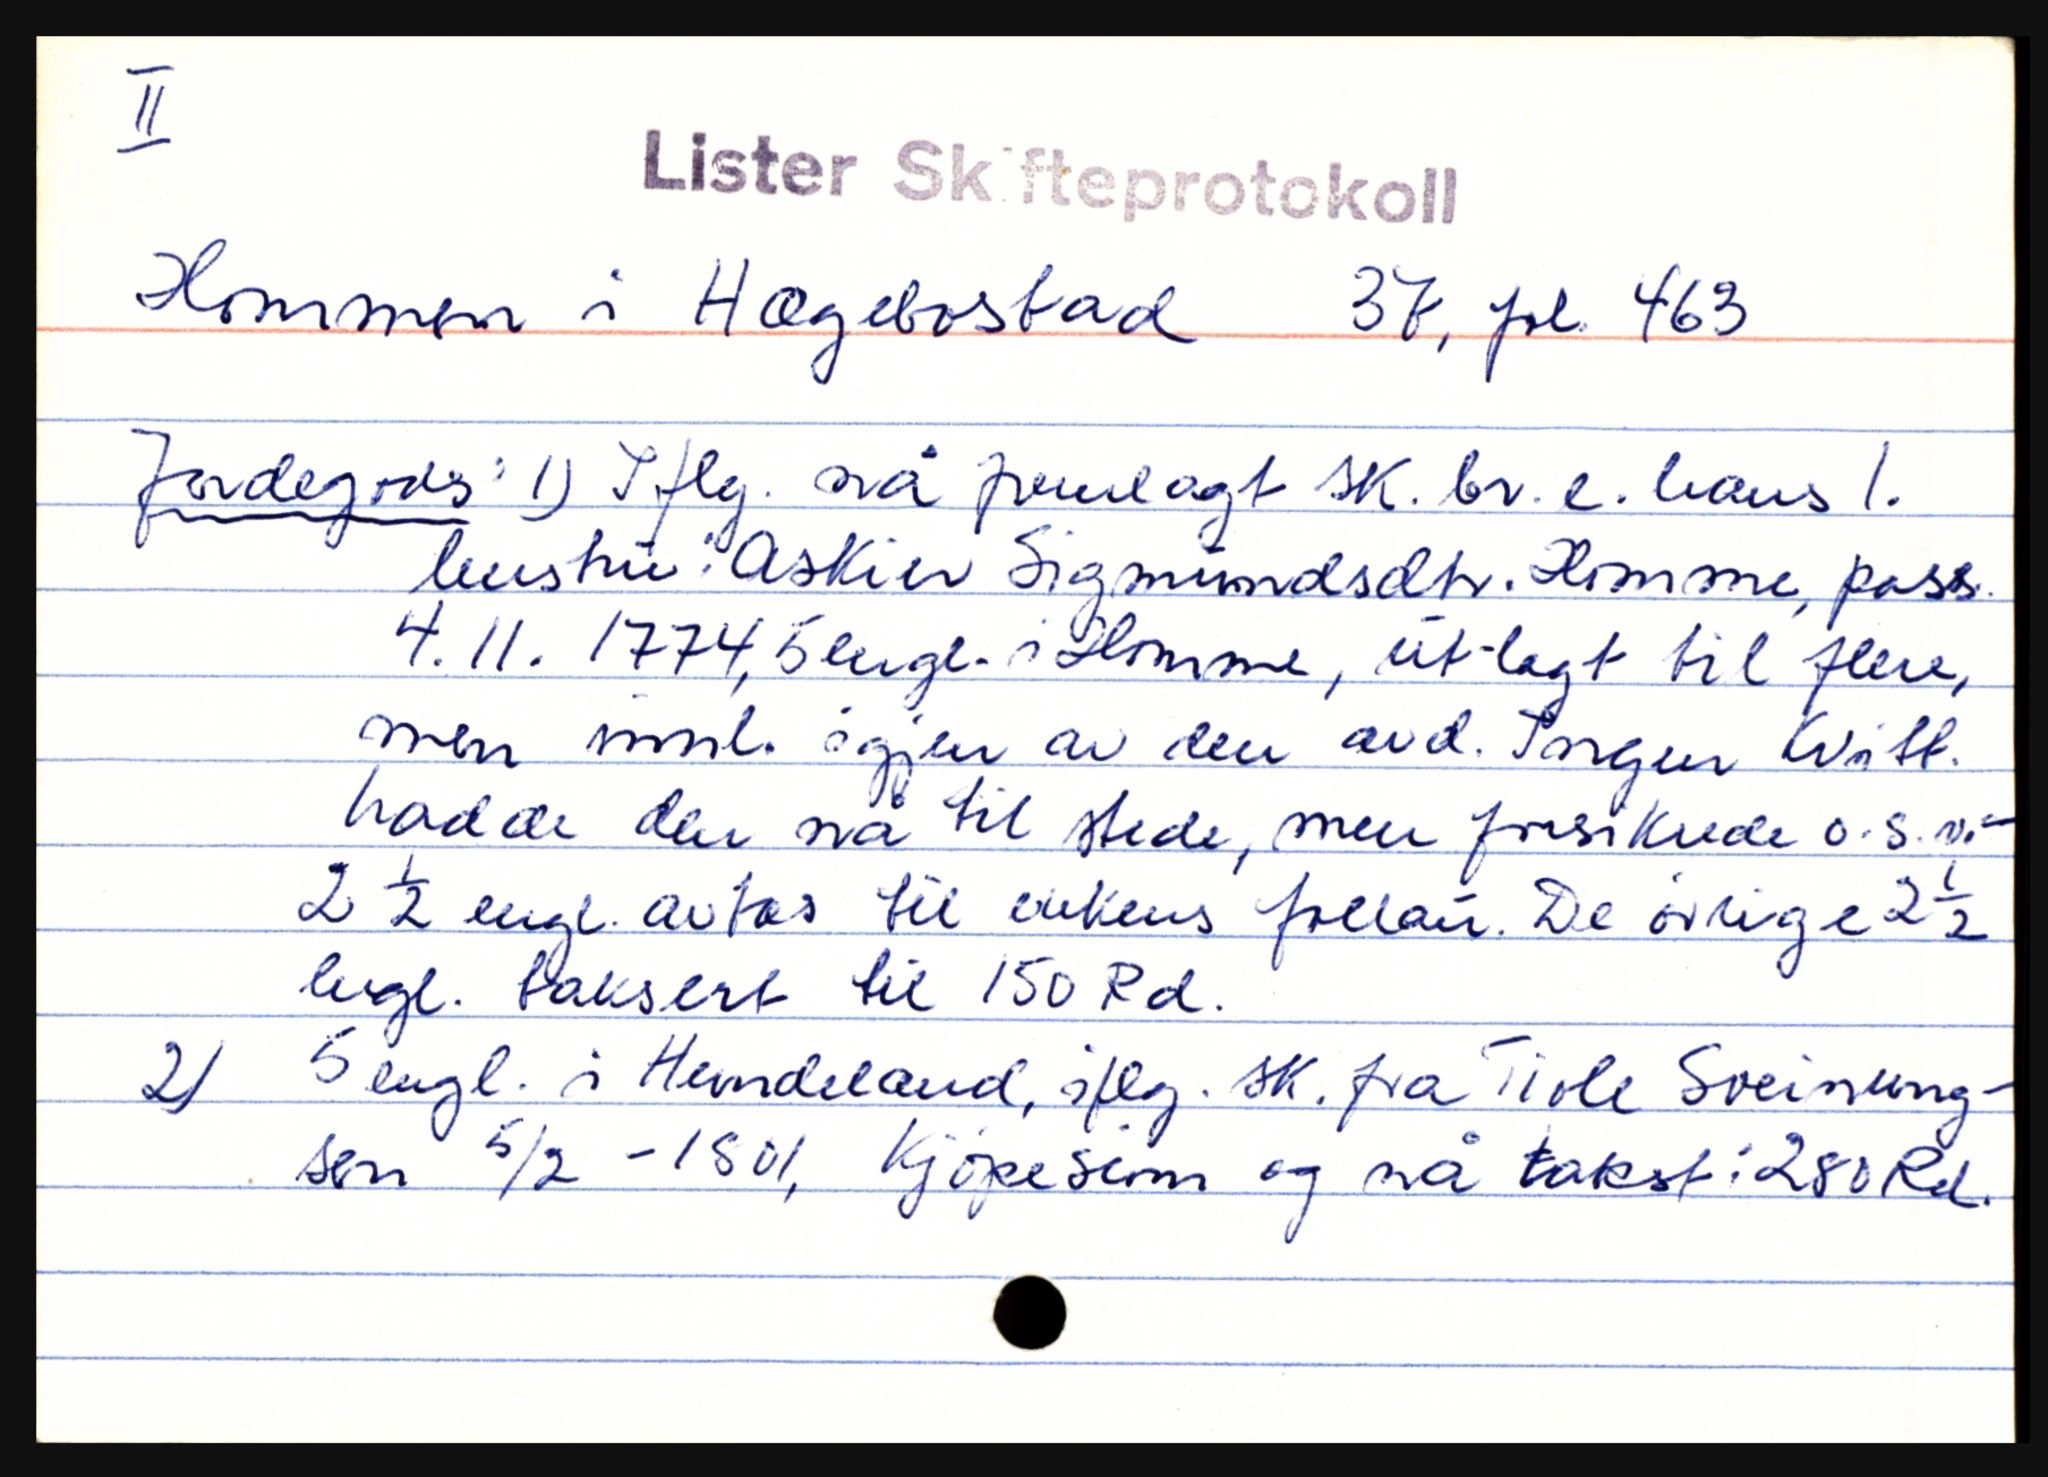 II
Lister Skifteprotokoll
Hommen i Hægebostad 37, fol. 463
Jordegods: 1) Iflg. nå fremlagt sk. br. e. hans 1.
hustru: Askier Sigmundsdtr. Homme, pass.
4. 11. 1774, 5 engl. i Homme, utlagt til flere,
men innl. igjen av den avd. Ingen kvitt.
hadde den nå til stede, men forsikrede o.s.v. -
2 1/2 engl. avtas til enkens follau. De övrige 2 1/2
engl. taksert til 150 Rd.
2) 5 engl. i Hundeland, iflg. sk. fra Tiole Sveinung-
sen 5/2 - 1801, Kjöpesum og nå takst: 280 Rd.